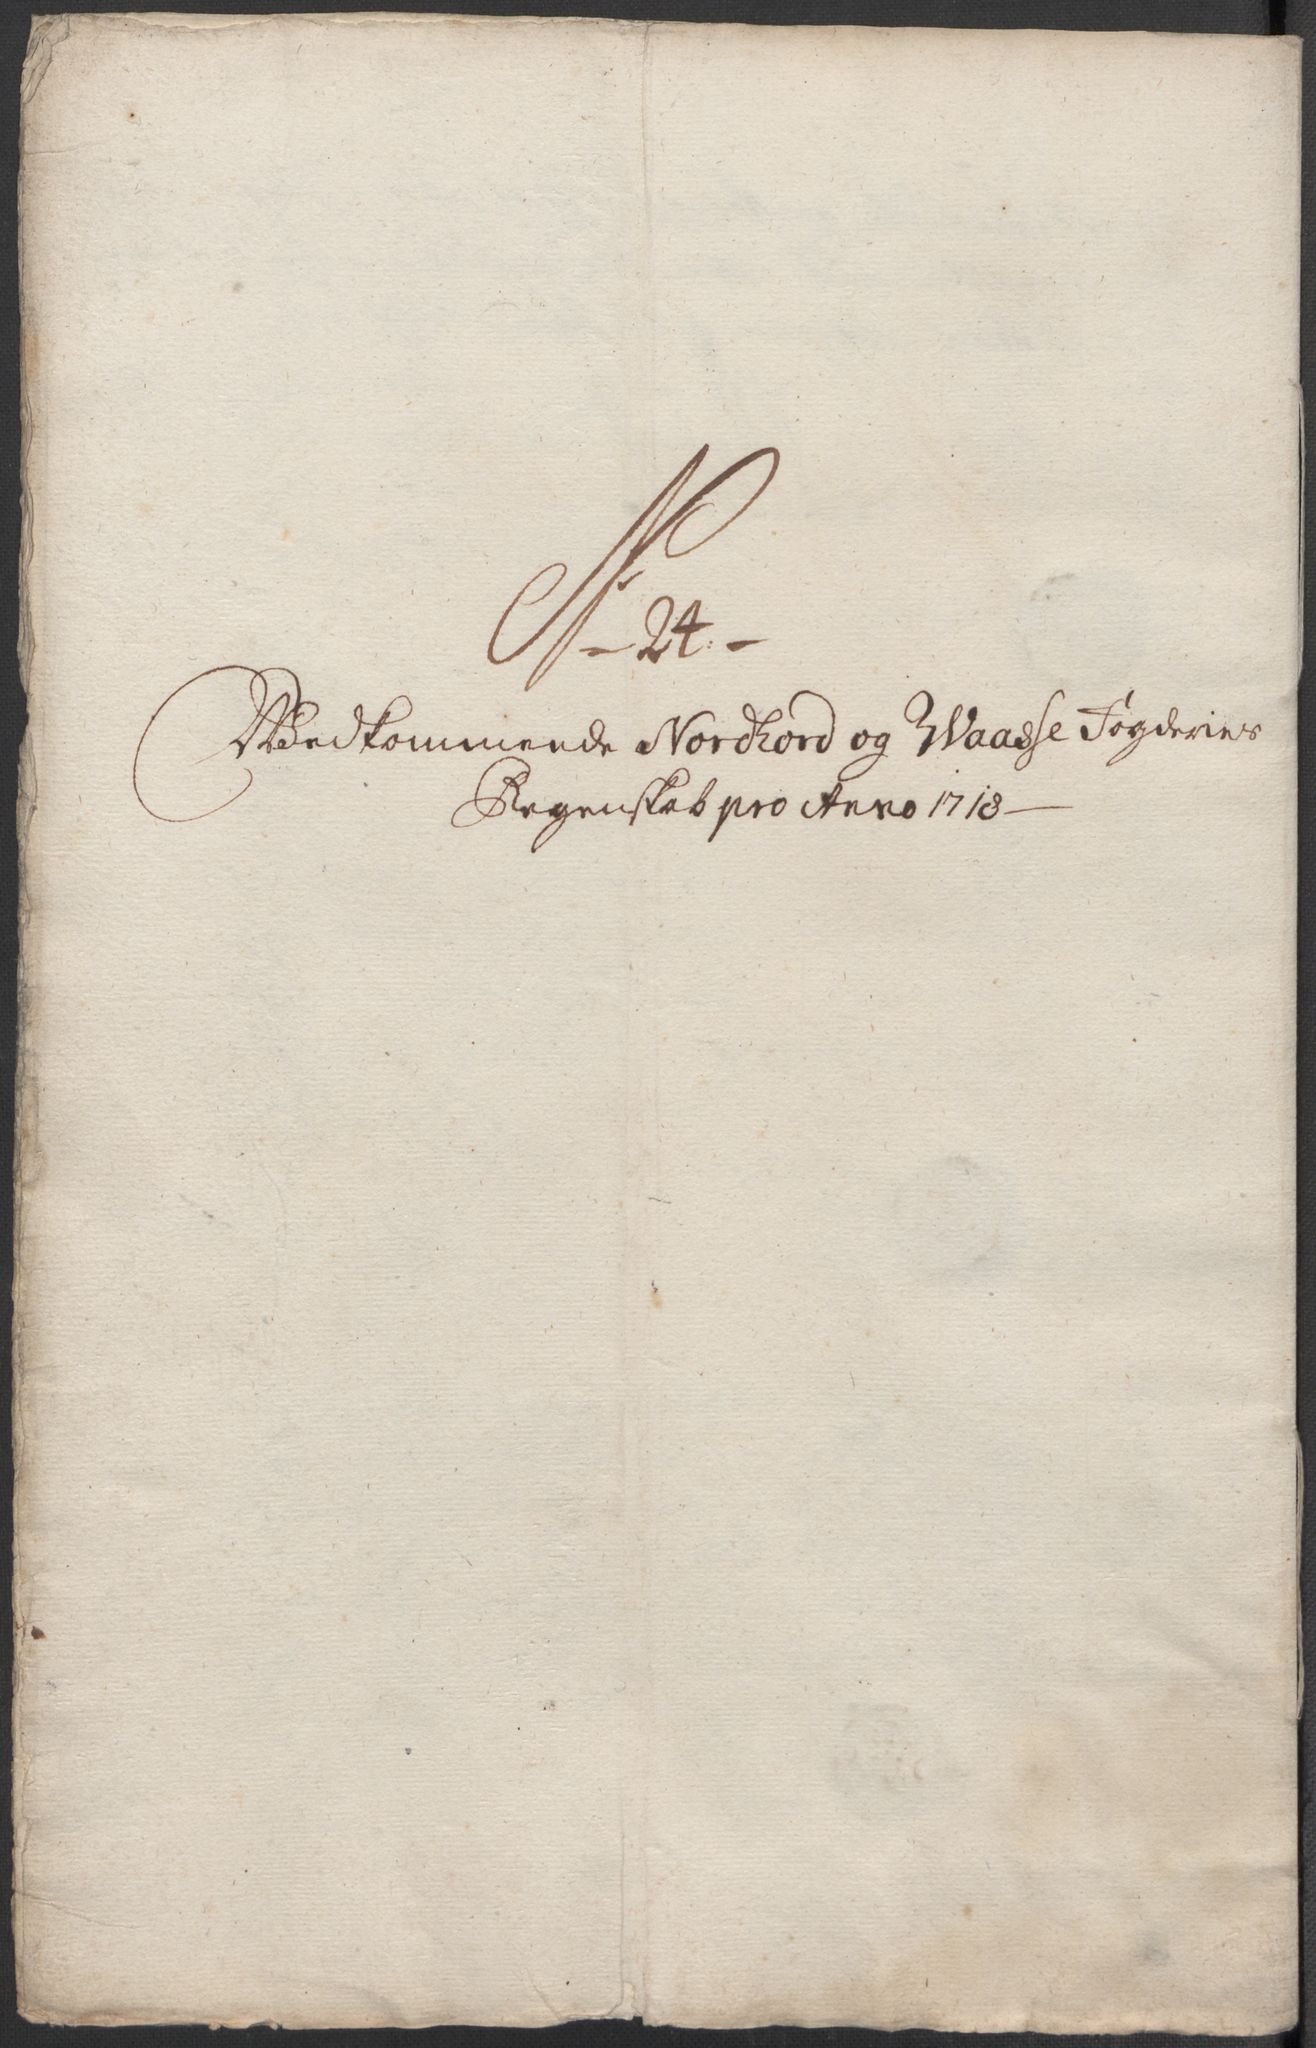 N
- 24. -
Wedkommende Nordhord og Waasse Fogderies
Regenskab pro Anno 1718